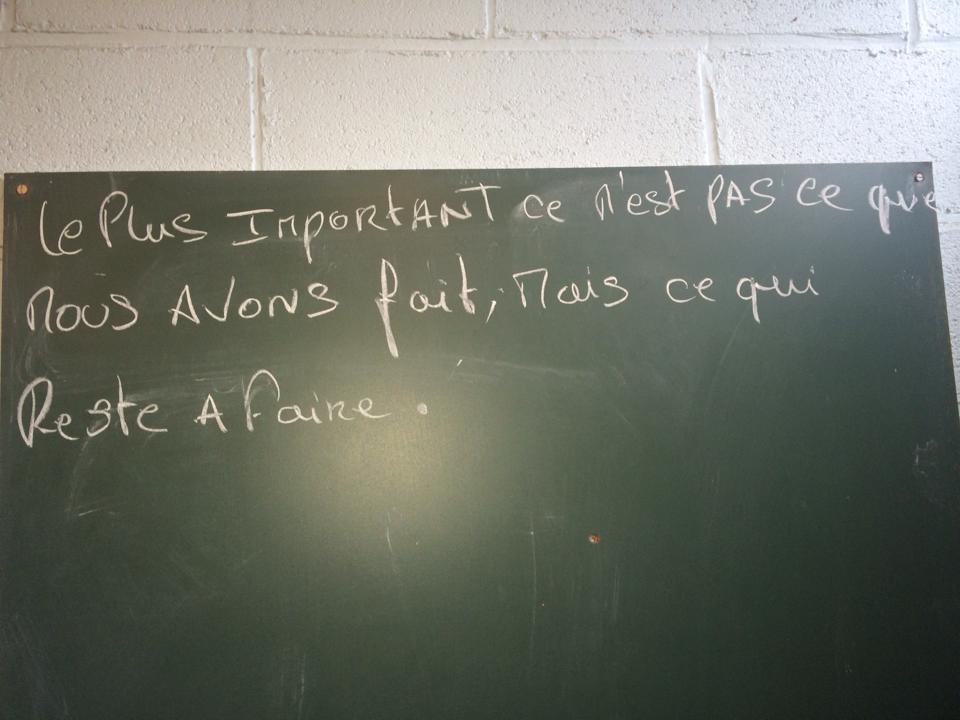 Le Plus IMPORTANT ce n'est PAS ce que
Nous AVONS fait, Mais ce qui
Reste A Faire.